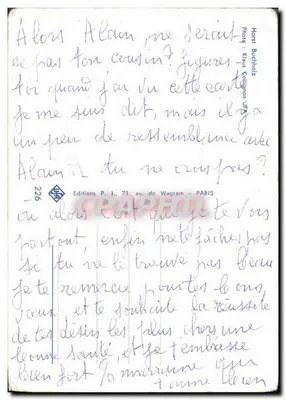 Alors Alain, ne serait
ce pas ton cousin? figures
toi quand j'ai vu cette carte
je me suis dit, mais il y a
un peu de ressemblance avec
Alain tu ne crois pas?
ou alors c'est que je te vois
partout, enfin ne te fâches pas
si tu ne le trouve pas beau
je te remercie pour tes bons
vœux et te souhaite la réussite
de tes désirs les plus chers une
bonne santé, et je t'embrasse
bien fort ta marraine qui
t'aime bien
Horst Buchholz
Photo : Klaus Collignon UFA
Editions P. I., 71, av. de Wagram - PARIS
226
CPAPHIL